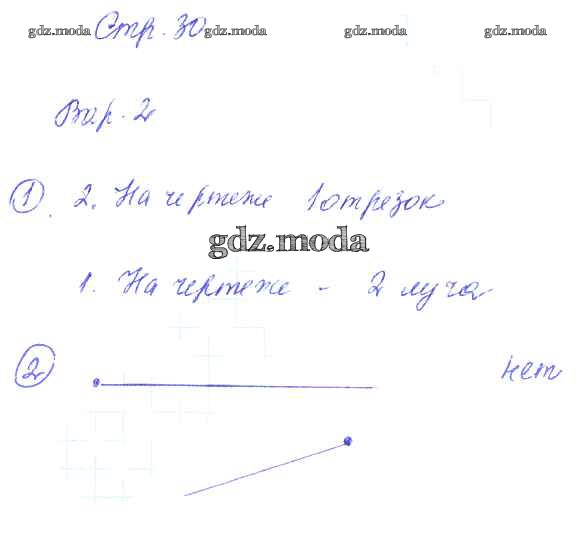 Стр. 30
gdz.moda gdz.moda gdz.moda gdz.moda
Вар. 2
1 2. На чертеже 1 отрезок
gdz.moda
1. На чертеже - 2 луча
2 нет